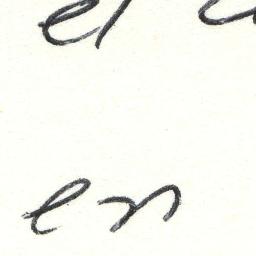 el
en